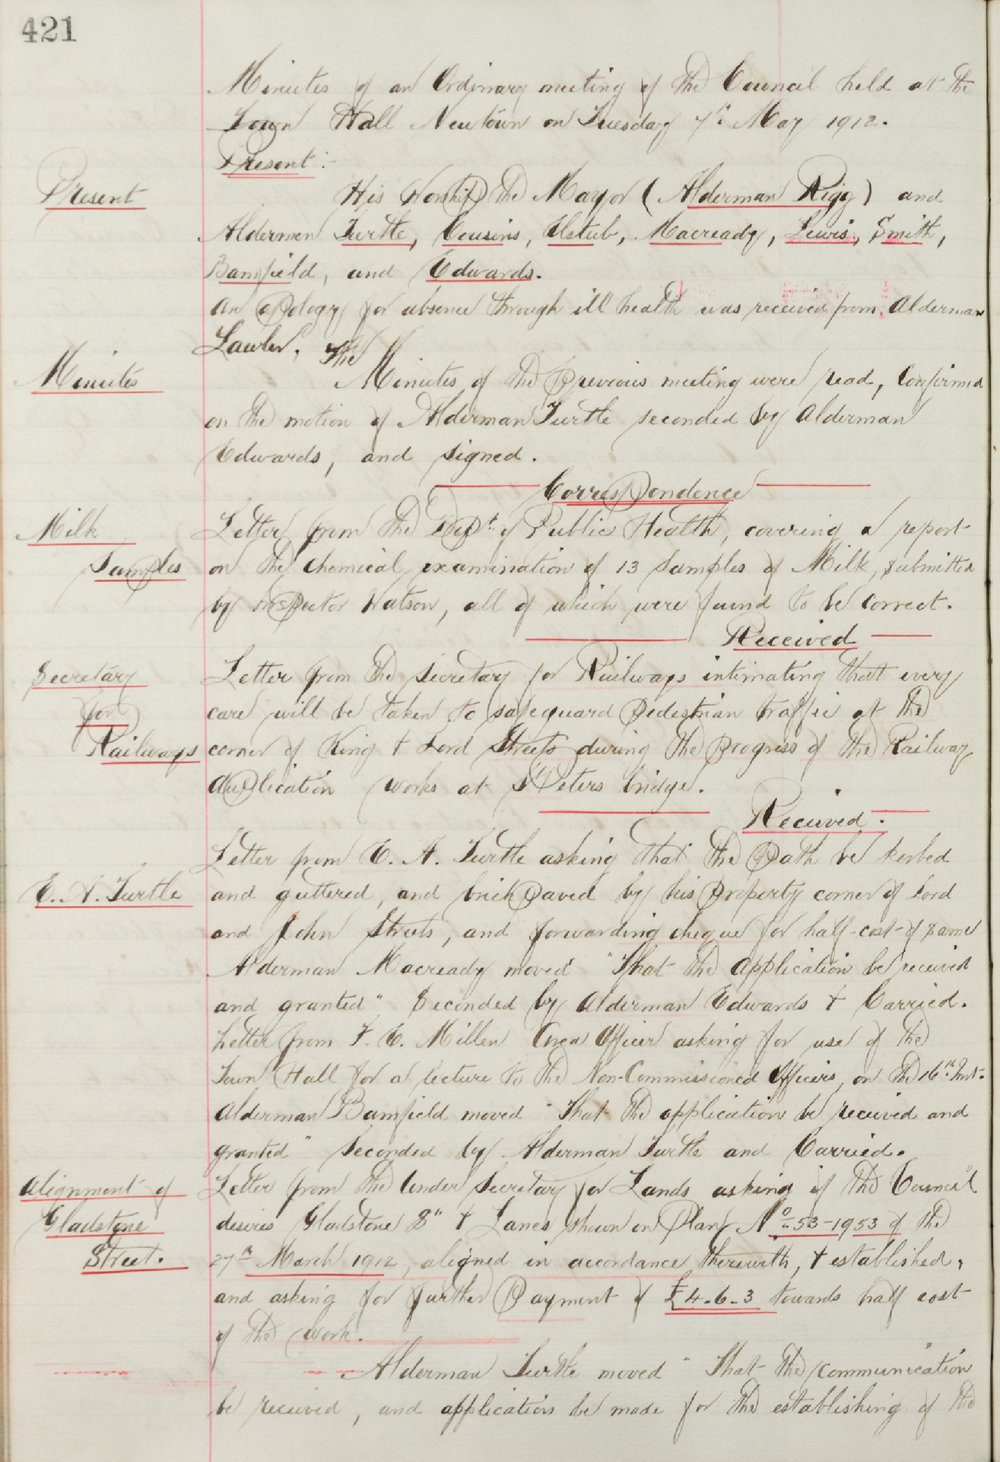 421
Minutes of an Ordinary meeting of the Council held at the
Town Hall Newtown on Tuesday 7th May 1912.
Present:-
Present
His Worship the Mayor (Alderman Rigg) and
Aldermen Turtle, Cousins, Ustub, Macready, Lewis, Smith,
Bamfield, and Edwards.
An apology for absence through ill health was received from Alderman
Lawler.
Minutes
The Minutes of the Previous meeting were read, Confirmed
on the motion of Alderman Turtle seconded by Alderman
Edwards, and signed.
Correspondence
Milk
Samples
Letter from the Dept of Public Health, covering a report
on the Chemical examination of 13 Samples of Milk, submitted
by Inspector Watson, all of which were found to be correct.
Received
Secretary
for
Railways
Letter from the Secretary for Railways intimating that every
care will be taken to safeguard Pedestrian traffic at the
corner of King & Lord Streets during the Progress of the Railway
duplication works at St Peters bridge.
Received.
E. A. Turtle
Letter from E. A. Turtle asking that the Path be kerbed
and guttered, and brick Paved by his Property corner of Lord
and John Streets, and forwarding cheque for half-cost of same
Alderman Macready moved "That the Application be received
and granted". Seconded by Alderman Edwards & Carried.
Letter from F. E. Millen Area Officer asking for use of the
Town Hall for a lecture to the Non-Commissioned Officers, on the 16th Inst.
Alderman Bamfield moved "That the application be received and
granted" Seconded by Alderman Turtle and Carried.
Alignment of
Gladstone
Street.
Letter from the Under Secretary for Lands asking if the Council
desires Gladstone St & Lanes shewn on Plan No 53-1953 of the
27th March 1912, aligned in accordance therewith, & established,
and asking for further Payment of £4-6-3 towards half cost
of the work.
Alderman Turtle moved "That the communication
be received, and application be made for the establishing of the